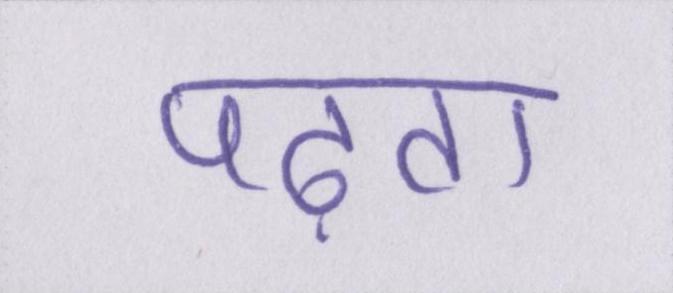 पढ़ता